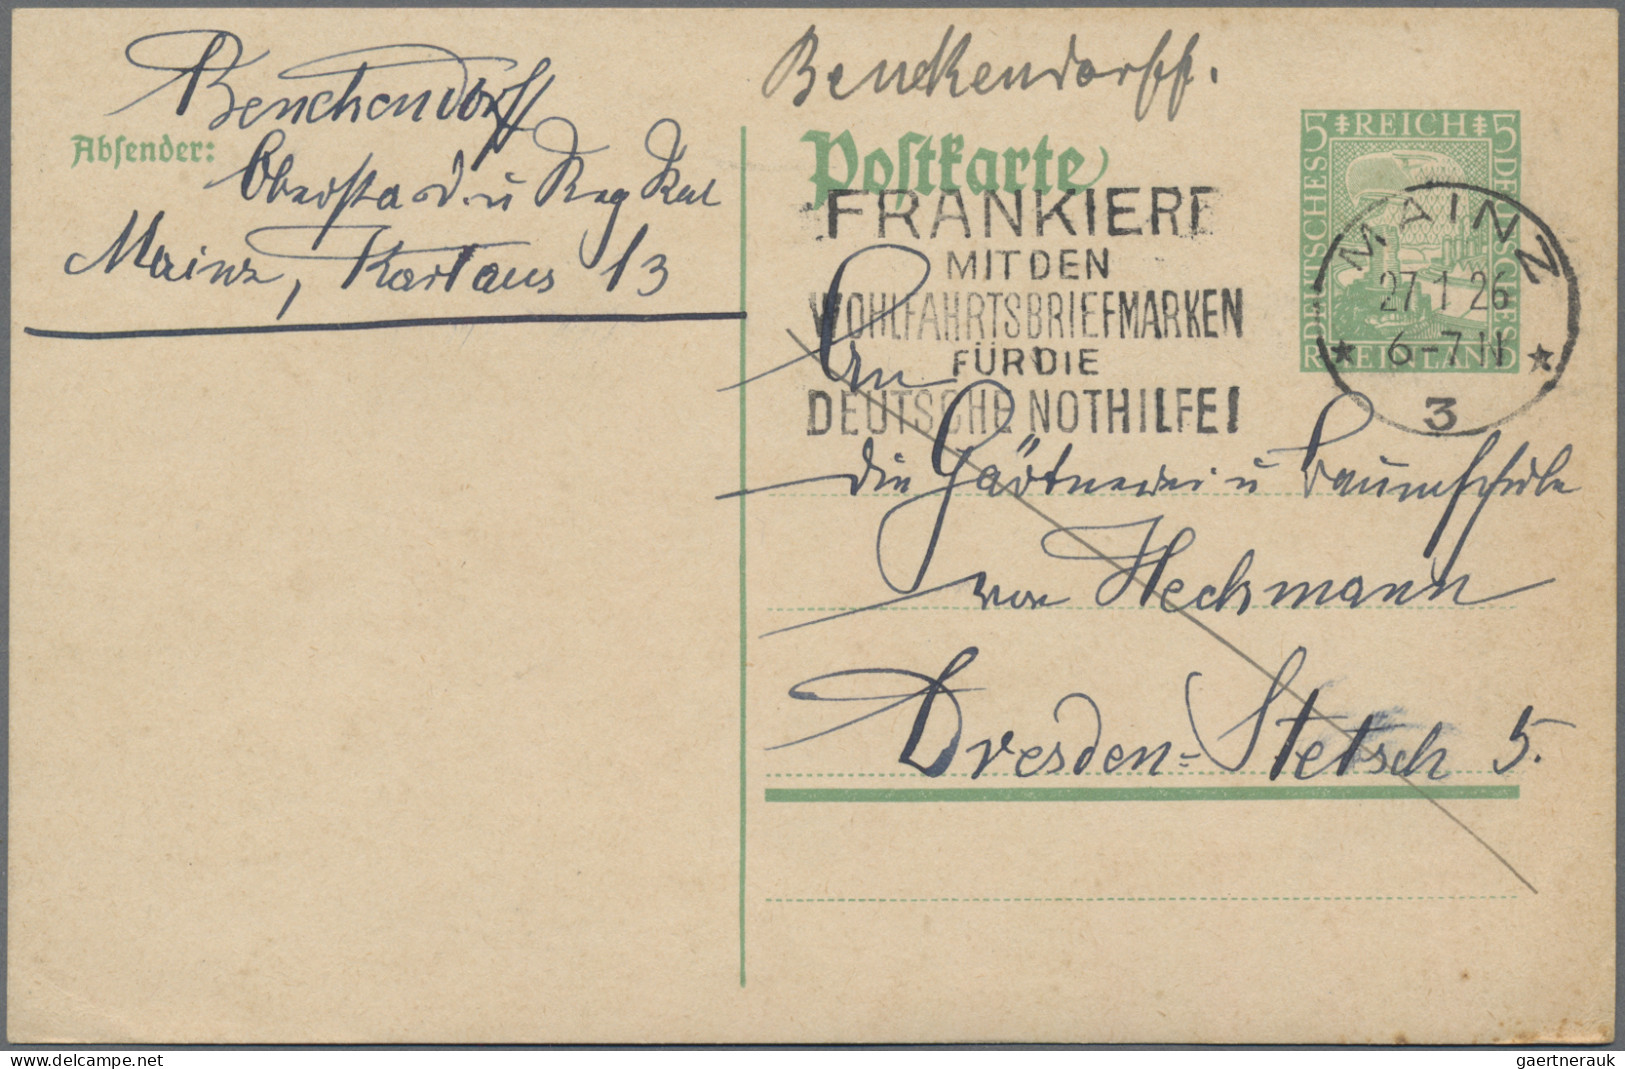 Benckendorff
Absender:
Oberst a. D. u Reg Rat
Mainz, Kartaus 13
Benckendorff.
Postkarte
5 REICH 5
DEUTSCHES
DEUTSCHES
RHEINLAND
FRANKIERE
MIT DEN
WOHLFAHRTSBRIEFMARKEN
FÜR DIE
DEUTSCHE NOTHILFE!
MAINZ
27 1 26
6-7 N
3
An
die Gärtnerei u Baumschule
von Heckmann
Dresden-Stetsch 5.
gaertnerauk
the-philatelist-dg.delcampe.net